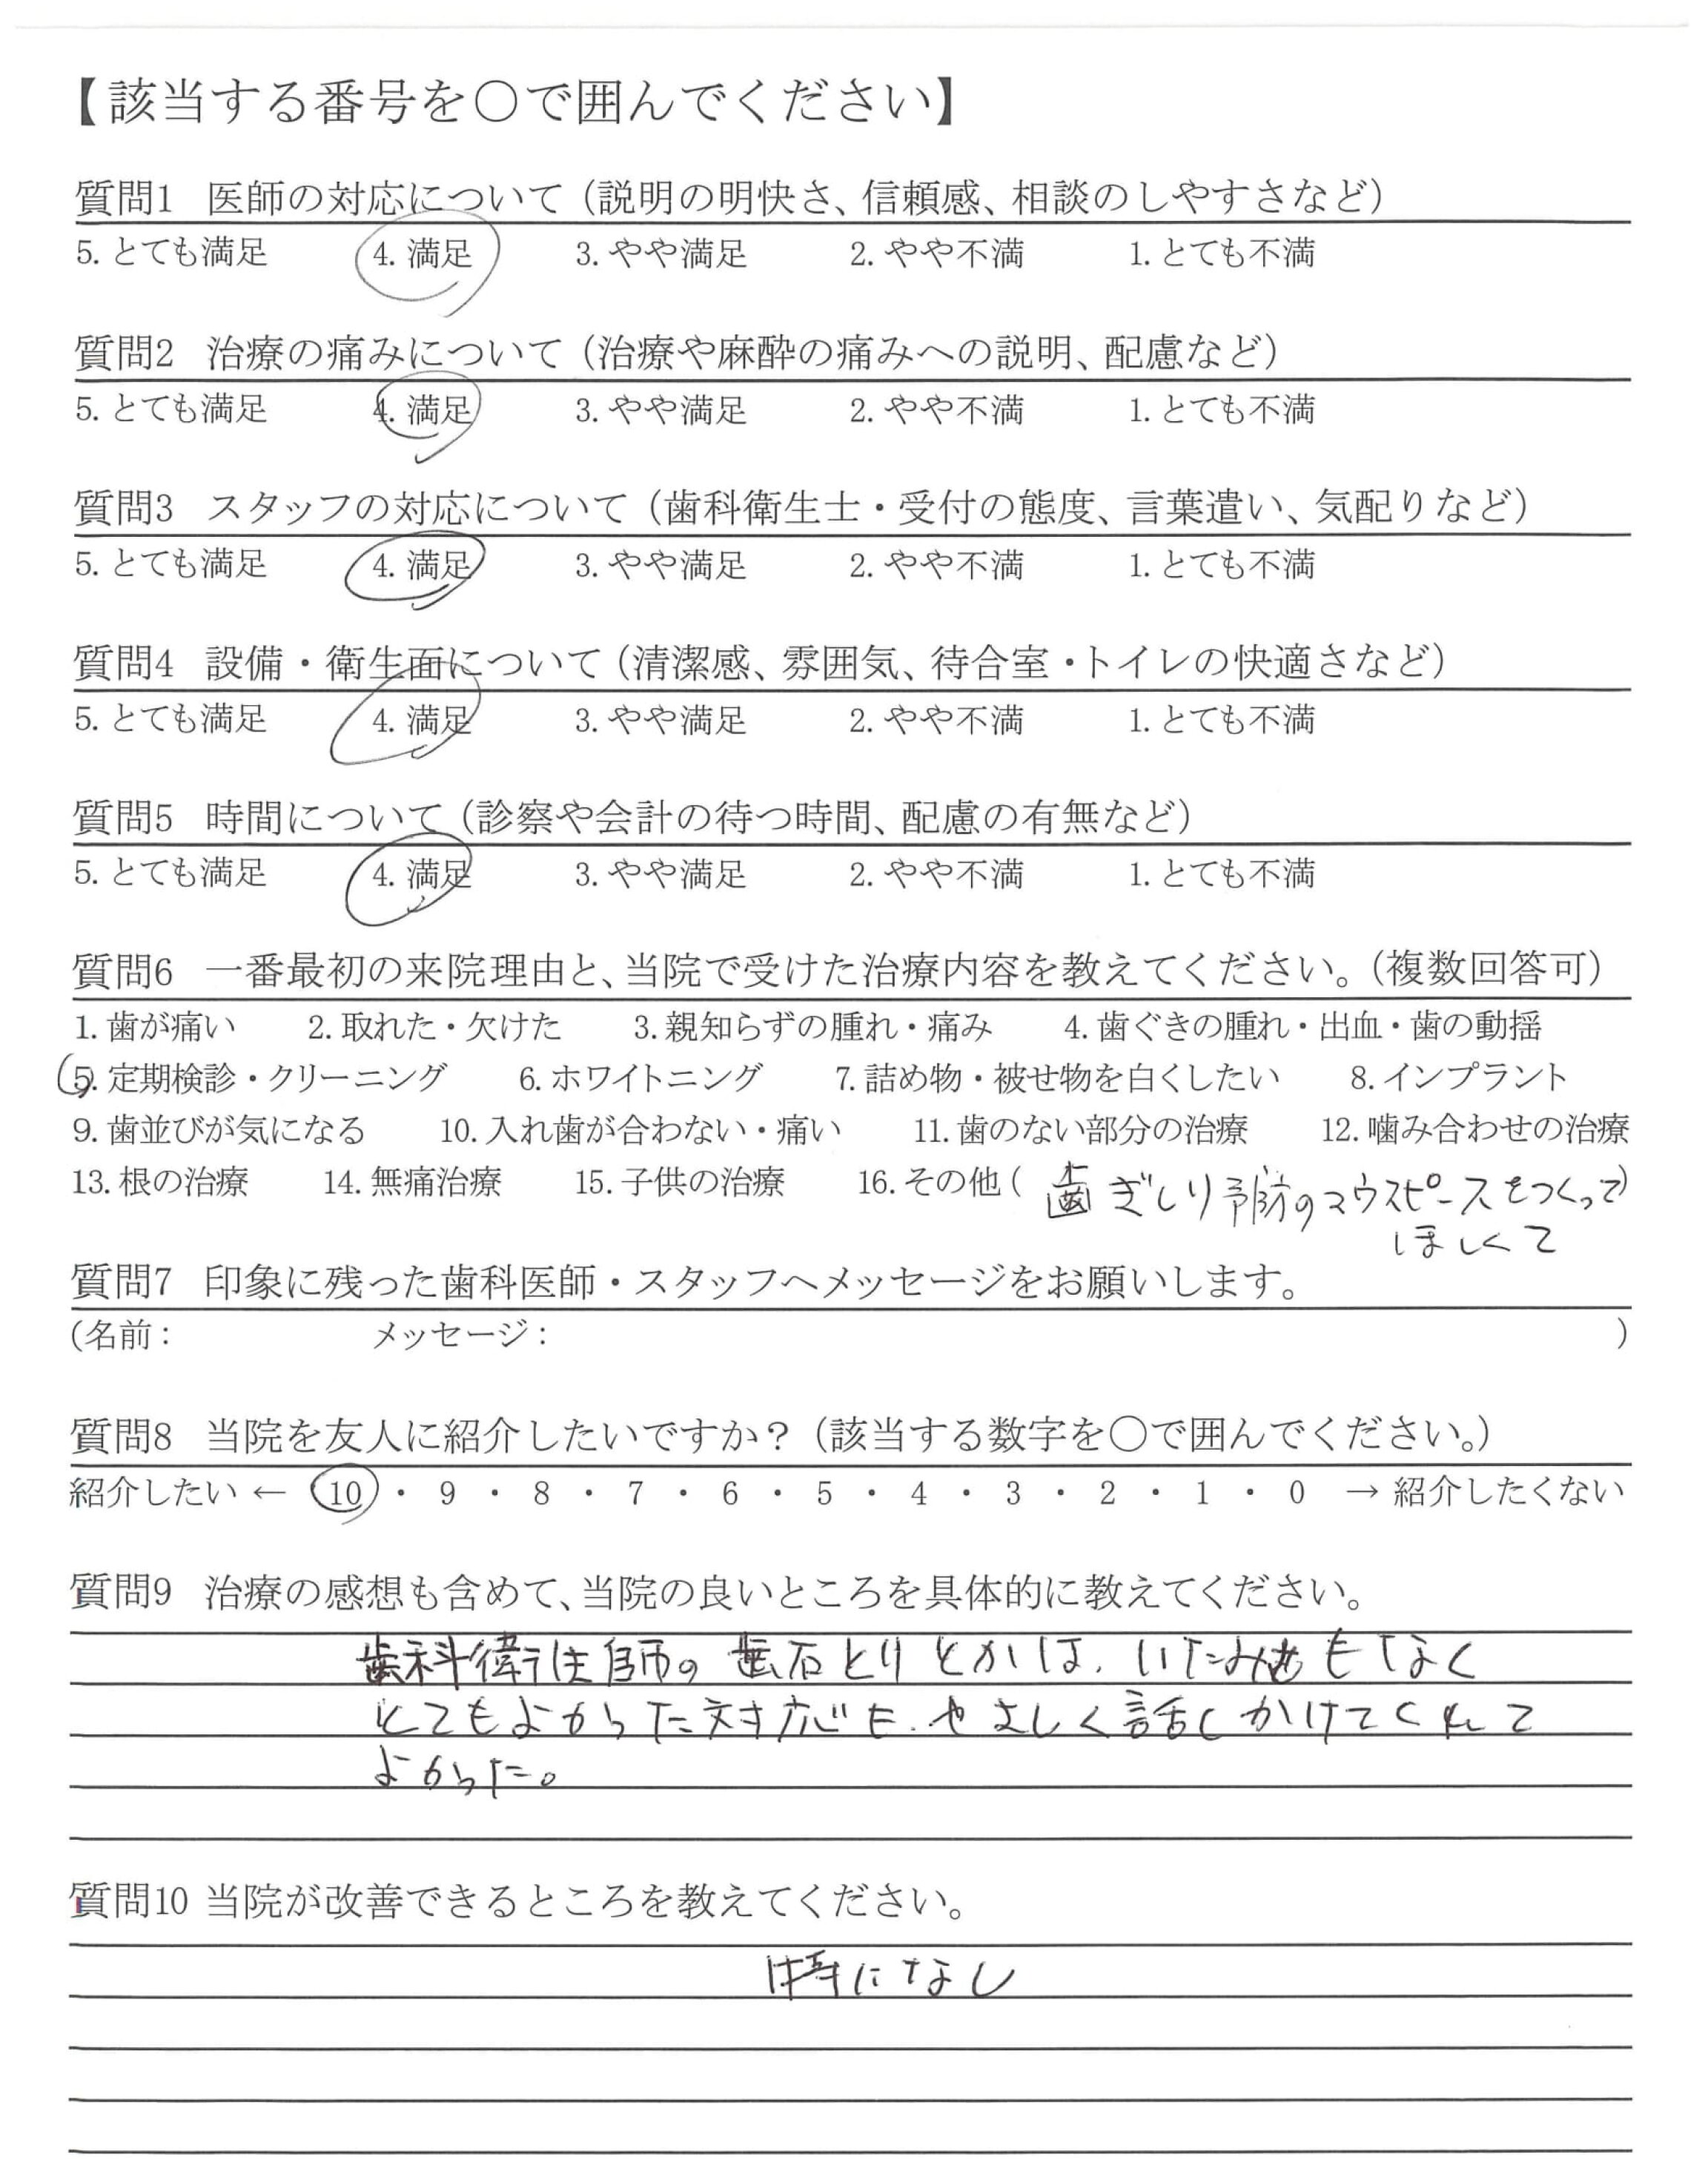 【該当する番号を〇で囲んでください】
質問1 医師の対応について（説明の明快さ、信頼感、相談のしやすさなど）
5. とても満足 4. 満足 3. やや満足 2. やや不満 1. とても不満
質問2 治療の痛みについて（治療や麻酔の痛みへの説明、配慮など）
5. とても満足 4. 満足 3. やや満足 2. やや不満 1. とても不満
質問3 スタッフの対応について（歯科衛生士・受付の態度、言葉遣い、気配りなど）
5. とても満足 4. 満足 3. やや満足 2. やや不満 1. とても不満
質問4 設備・衛生面について（清潔感、雰囲気、待合室・トイレの快適さなど）
5. とても満足 4. 満足 3. やや満足 2. やや不満 1. とても不満
質問5 時間について（診察や会計の待つ時間、配慮の有無など）
5. とても満足 4. 満足 3. やや満足 2. やや不満 1. とても不満
質問6 一番最初の来院理由と、当院で受けた治療内容を教えてください。（複数回答可）
1. 歯が痛い 2. 取れた・欠けた 3. 親知らずの腫れ・痛み 4. 歯ぐきの腫れ・出血・歯の動揺
5. 定期検診・クリーニング 6. ホワイトニング 7. 詰め物・被せ物を白くしたい 8. インプラント
9. 歯並びが気になる 10. 入れ歯が合わない・痛い 11. 歯のない部分の治療 12. 噛み合わせの治療
13. 根の治療 14. 無痛治療 15. 子供の治療 16. その他（歯ぎしり予防のマウスピースをつくって）
ほしくて
質問7 印象に残った歯科医師・スタッフへメッセージをお願いします。
（名前： メッセージ： ）
質問8 当院を友人に紹介したいですか？（該当する数字を〇で囲んでください。）
紹介したい ← 10 ・ 9 ・ 8 ・ 7 ・ 6 ・ 5 ・ 4 ・ 3 ・ 2 ・ 1 ・ 0 → 紹介したくない
質問9 治療の感想も含めて、当院の良いところを具体的に教えてください。
歯科衛住師の歯石とりとかは、いたみもなく
とてもよかった対応も、やさしく話しかけてくれて
よかった。
質問10 当院が改善できるところを教えてください。
特になし